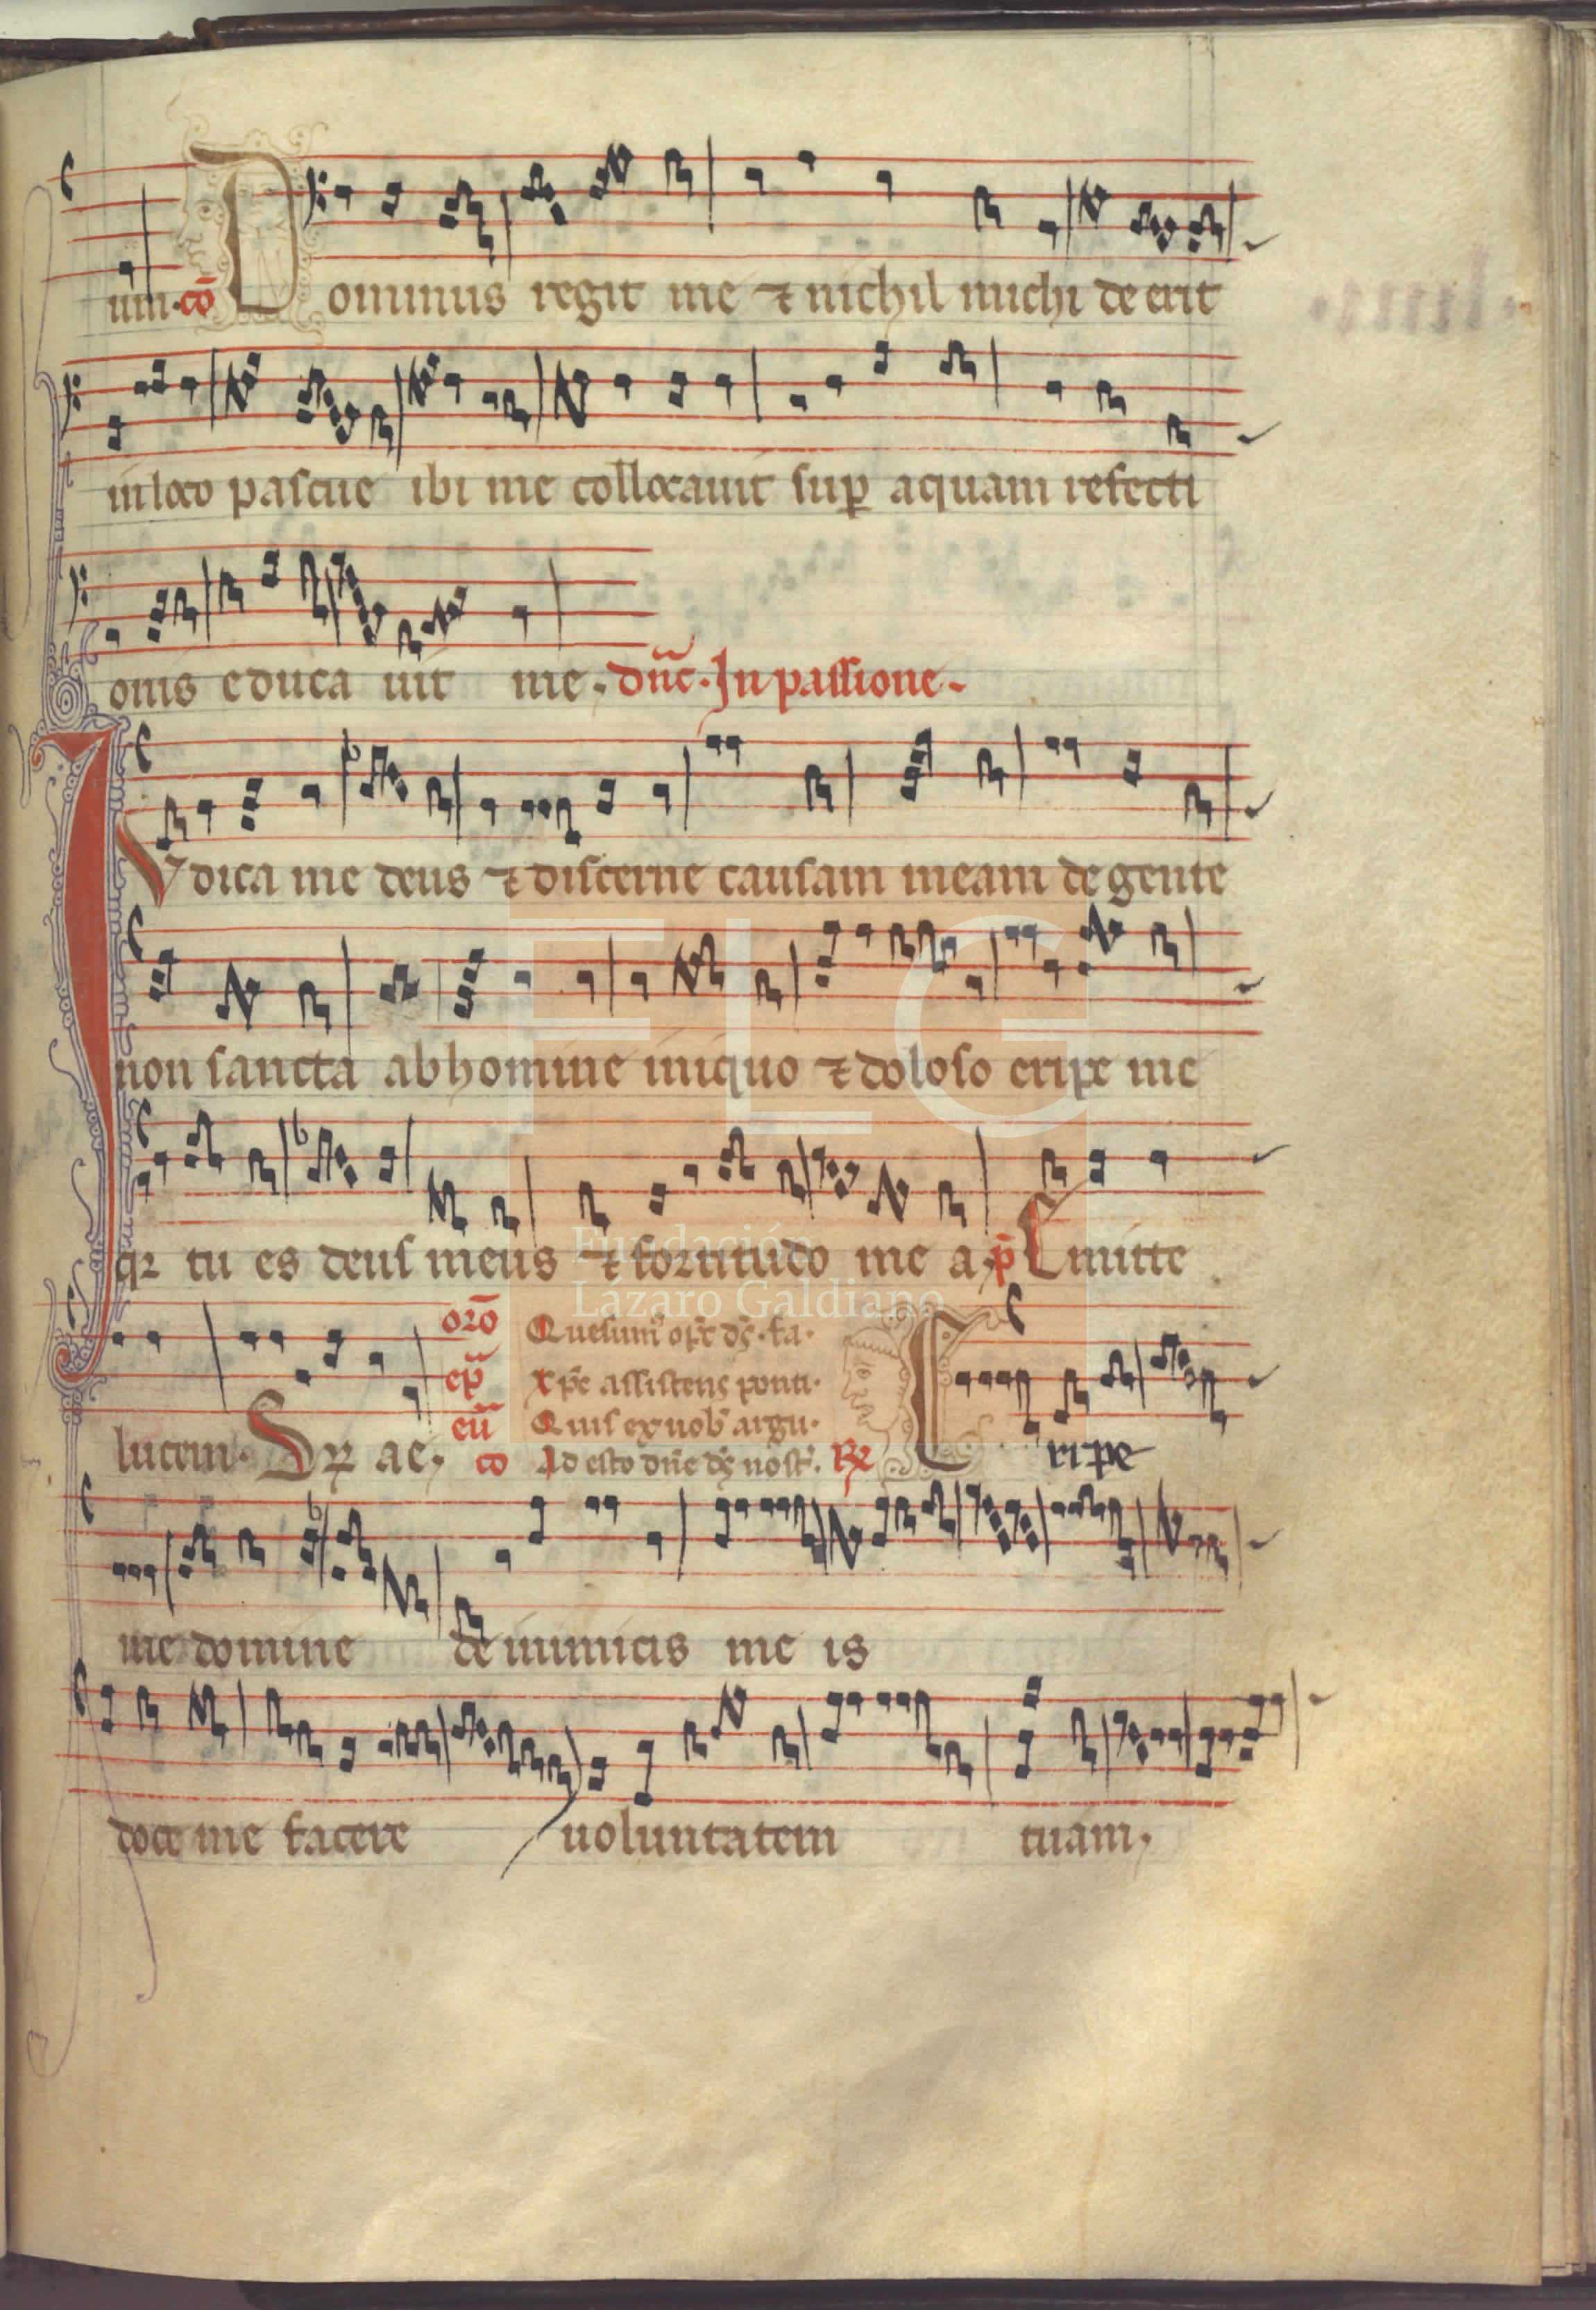 um. cō Dominus regit me ⁊ nichil michi de erit
in loco pascue ibi me collocauit sup̄ aquam refecti
onis educa uit me. dn̄c. In passione.
IVdica me deus ⁊ discerne causam meam de gente
non sancta ab homine iniquo ⁊ doloso eripe me
qr tu es deus meus ⁊ fortitudo me a. p̄ Emitte
lucem. Sꝝ ae.
orō Quesum' op̄c ds̄. fa.
ep̄ xp̄c assistens ponti.
eū Quis ex uob' argu.
co Adesto dn̄e ds̄ nost'. R̄ Eripe
me domine de inimicis me is
doce me facere uoluntatem tuam.
FLG
Fundación
Lázaro Galdiano